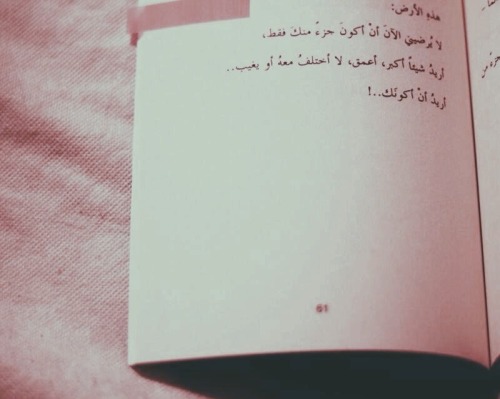 هذهِ الأرض:
لا يُرضيني الآنَ أنْ أكونَ جزءٌ منكَ فقط،
أريدُ شيئاً أكبر، أعمق، لا أختلفُ معهُ أو يغيب..
أريدُ أنْ أكونَك..!
61